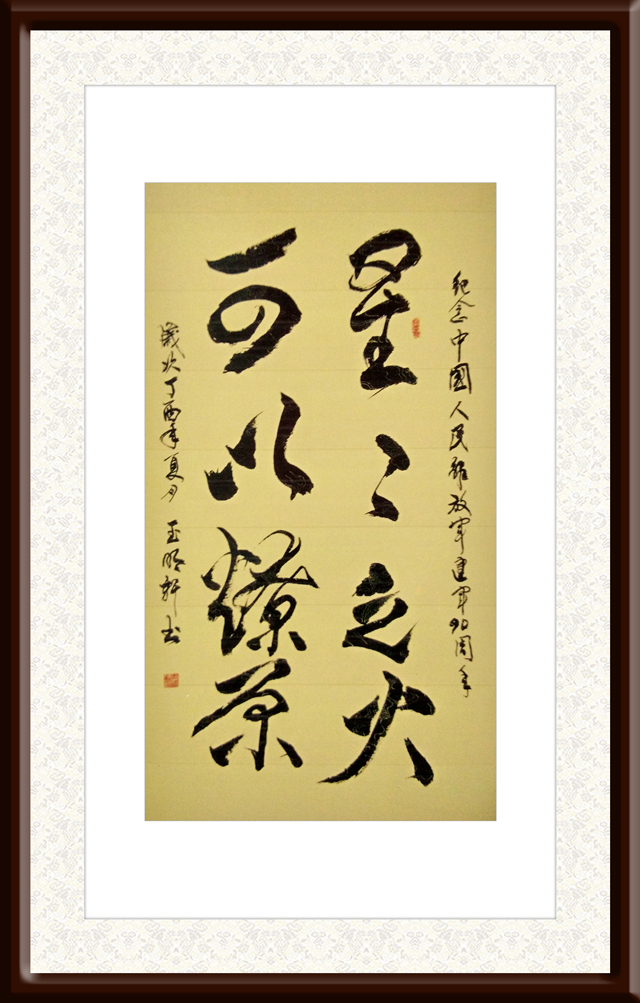 纪念中國人民解放军建军90周年
星〻之火
可以燎原
歲次丁酉年夏月 王明轩书